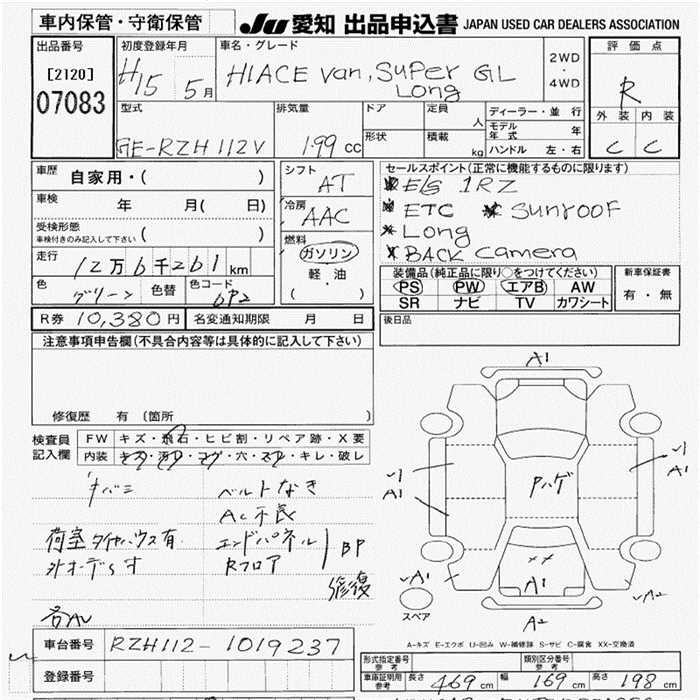 車内保管・守衛保管
JU 愛知 出品申込書 JAPAN USED CAR DEALERS ASSOCIATION
出品番号
[2120]
07083
初度登録年月
H15 5月
車名・グレード
HIACE Van, Super GL
Long
2WD
・
4WD
評価点
R
外装 内装
C C
型式
GE-RZH112V
排気量
1.99 cc
ドア
形状
定員
人
積載
kg
ディーラー・並行
モデル年式 年
ハンドル 左・右
車歴
自家用・( )
車検 年 月( 日)
受検形態
車検付きのみ記入して下さい ( )
走行
12万6千261km
色
グリーン
色替
色コード
6P2
シフト
AT
冷房
AAC
燃料
ガソリン
軽・油
( )
セールスポイント(正常に機能するものに限ります)
E/G 1RZ
ETC Sunroof
Long
BACK camera
装備品(純正品に限り○をつけてください)
PS PW エアB AW
SR ナビ TV カワシート
新車保証書
有・無
R券 10,380円
名変通知期限 月 日
後日品
注意事項申告欄(不具合内容等は具体的に記入して下さい)
修復歴 有(箇所
検査員
記入欄
FW キズ・飛石・ヒビ割・リペア跡・X要
内装 キズ・汚レ・コゲ・穴・スレ・キレ・破レ
ベルトなき
AC不良
荷室タイヤハウス有
エンドパネル
Rフロア
BP
修復
各AU
A1
A1
A1
Pハゲ
××
A1
A2
A2
スペア
A-キズ E-エクボ U-凹み W-補修跡 S-サビ C-腐食 XX-交換済
車台番号 RZH112-1019237
登録番号
形式指定番号
参考
類別区分番号
参考
車庫証明用
参考
長さ 469cm 幅 169cm 高さ 198cm